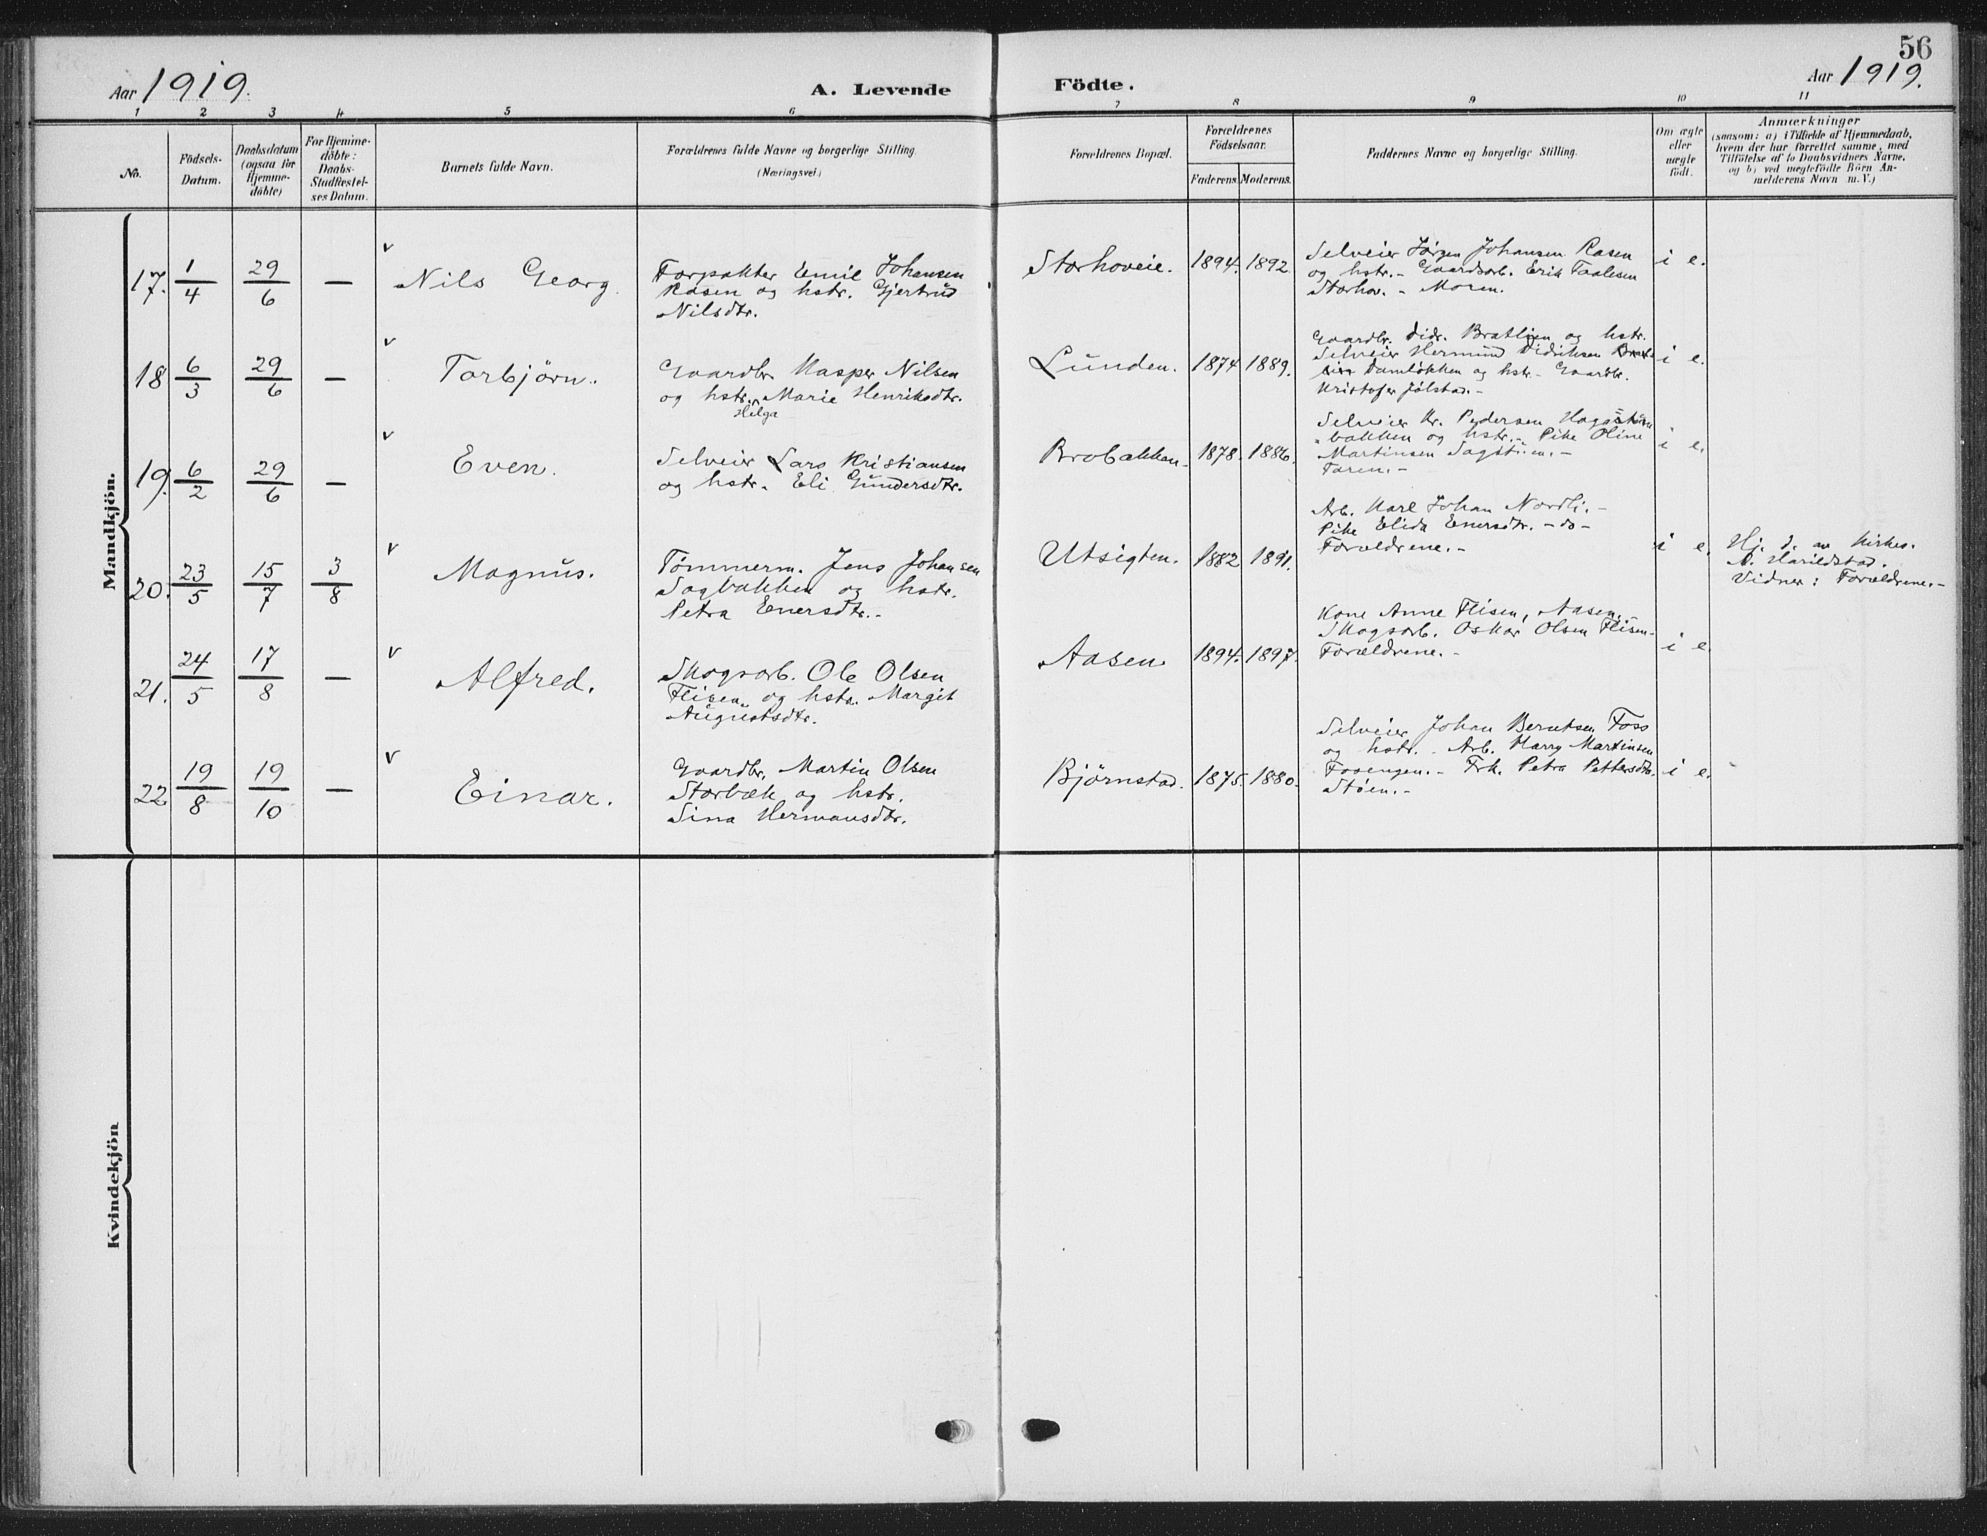 56
Aar 1919.
A. Levende
Födte.
Aar 1919.
1 2 3 4 5 6 7 8 9 10 11
No.
Födsels-
Datum.
Daabsdatum
(ogsaa for
Hjemme-
döbte)
For Hjemme-
döbte:
Daabs-
Stadfæstel-
ses Datum.
Barnets fulde Navn.
Forældrenes fulde Navne og borgerlige Stilling.
(Næringsvei)
Forældrenes Bopæl.
Forældrenes
Födselsaar.
Faderens. Moderens.
Faddernes Navne og borgerlige Stilling.
Om ægte
eller
uægte
födt.
Anmærkninger
(saasom: a) i Tilfælde af Hjemmedaab,
hvem der har forrettet samme, med
Tilföielse af to Daabsvidners Navne,
og b) ved uægtefödte Börn An-
melderens Navn m. V.)
Mandkjön.
17. 1/4 29/6 — v Nils Georg.
Forpakter Emil Johansen
Rasen og hstr. Gjertrud
Nilsdtr.
Storhoveie. 1894. 1892
Selveier Jørgen Johansen Rasen
og hstr. - Gaardsarb. Erik Paalesen
Storhov. - Moren.
i e.
18 6/3 29/6 — v Torbjörn.
Gaardbr Kasper Nilsen
og hstr. Marie Henriksdtr.
Helga
Lunden. 1874 1889.
Gaardbr. Didr. Bratlien og hstr.
Selveier Hermund Didriksen Brat-
lien Damløkken og hstr - Gaardbr.
Kristofer Jølstad. -
i e.
19. 6/2 29/6 — v Even.
Selveier Lars Kristiansen
og hstr. Eli Gundersdtr.
Brobakken 1878. 1886.
Selveier Kr. Pedersen
bakken og hstr. - Pike Oline
Martinsen Sagstuen. -
Faren. -
i e.
20. 23/5 15/7 3/8 v Magnus.
Tømmerm. Jens Johansen
Sagbakken og hstr.
Petra Enersdtr. -
Utsigten. 1882 1891.
Arb. Karl Johan Nordli. -
Pike Elida Enersdtr. - do -
Forældrene. -
i e.
Hj. d. av Kirkes.
A. Harildstad.
Vidner: Forældrene. -
21. 24/5 17/8 — v Alfred.
Skogsarb. Ole Olsen
Flisen og hstr. Margit
Augustsdtr.
Aasen 1894. 1897.
Kone Anne Flisen, Aasen. -
Skogsarb. Oskar Olsen Flisen -
Forældrene. -
i e
22 19/8 19/10 — v Einar.
Gaardbr. Martin Olsen
Storbæk og hstr.
Sina Hermansdtr.
Bjørnstad. 1875. 1880.
Selveier Johan Berntsen Foss
og hstr. - Arb. Harry Martinsen
Fossengen. - Frk. Petra Pettersdtr.
Støen. -
i e.
Kvindekjön